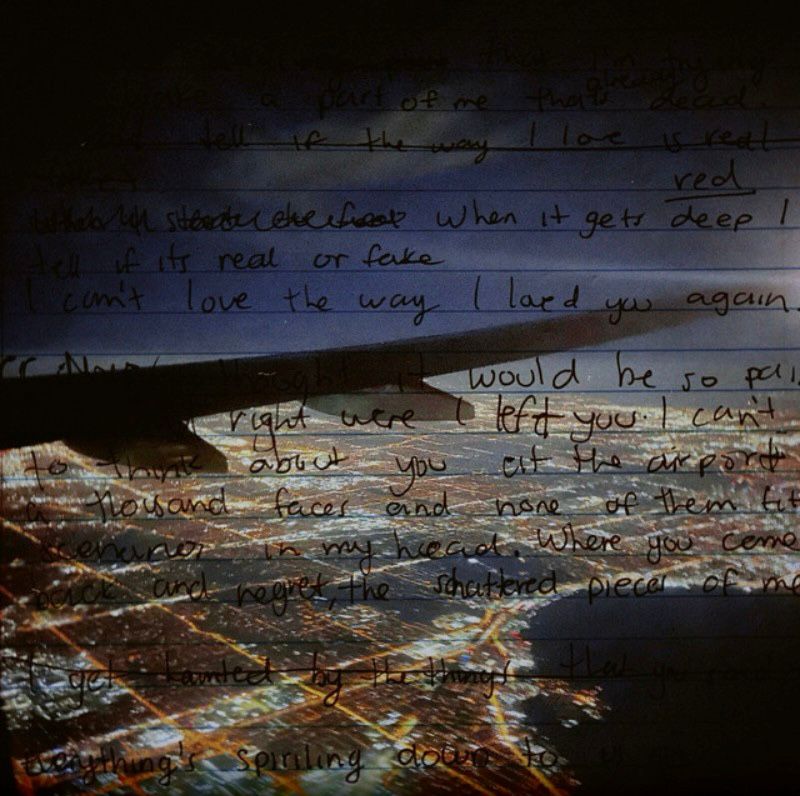 that I'm trying
already
a part of me that's dead.
tell if the way I love is real
red
when it gets deep I
tell if its real or fake
I can't love the way I loed you again
thought it would be so pai
right were I left you. I can't
to think about you at the airport
a thousand faces and none of them fit
in my head. Where you come
back and regret, the schattered pieces of me
I get taunted by the things that
everything's spiriling down to